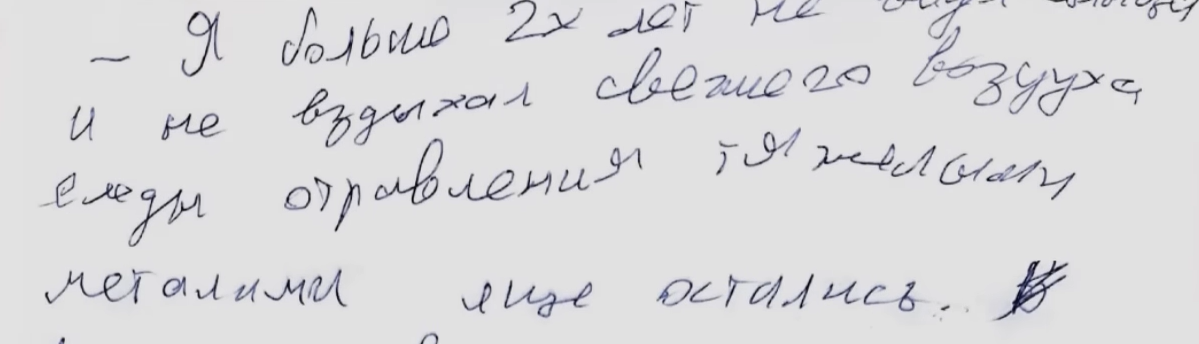 – Я больше 2х лет не
и не вздыхал свежего воздуха
следы отравления тяжелыми
металими еще остались.